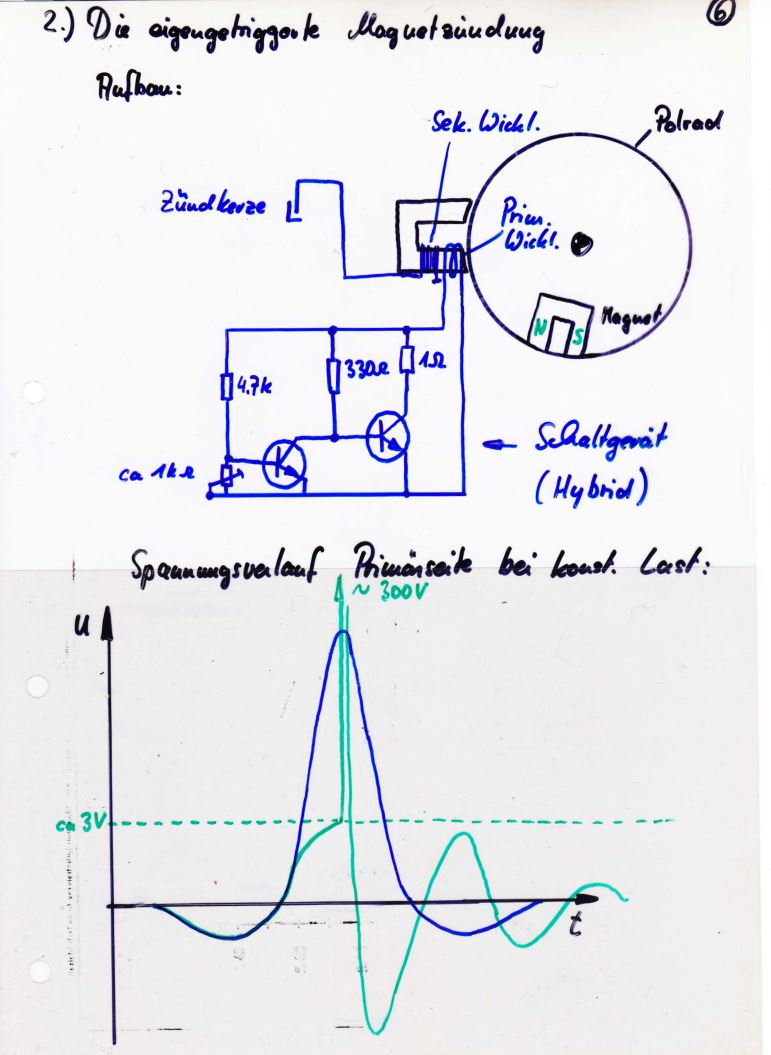 6
2.) Die eigengetriggerte Magnetzündung
Aufbau:
Sek. Wickl.
Polrad
Zündkerze
Prim.
Wickl.
Magnet
N S
4.7k
330Ω
1Ω
ca 1kΩ
Schaltgerät
(Hybrid)
Spannungsverlauf Primärseite bei konst. Last:
~ 300V
U
ca 3V
t